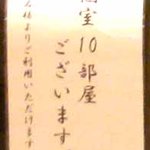 室10部屋
ございます
様よりご利用いただけます